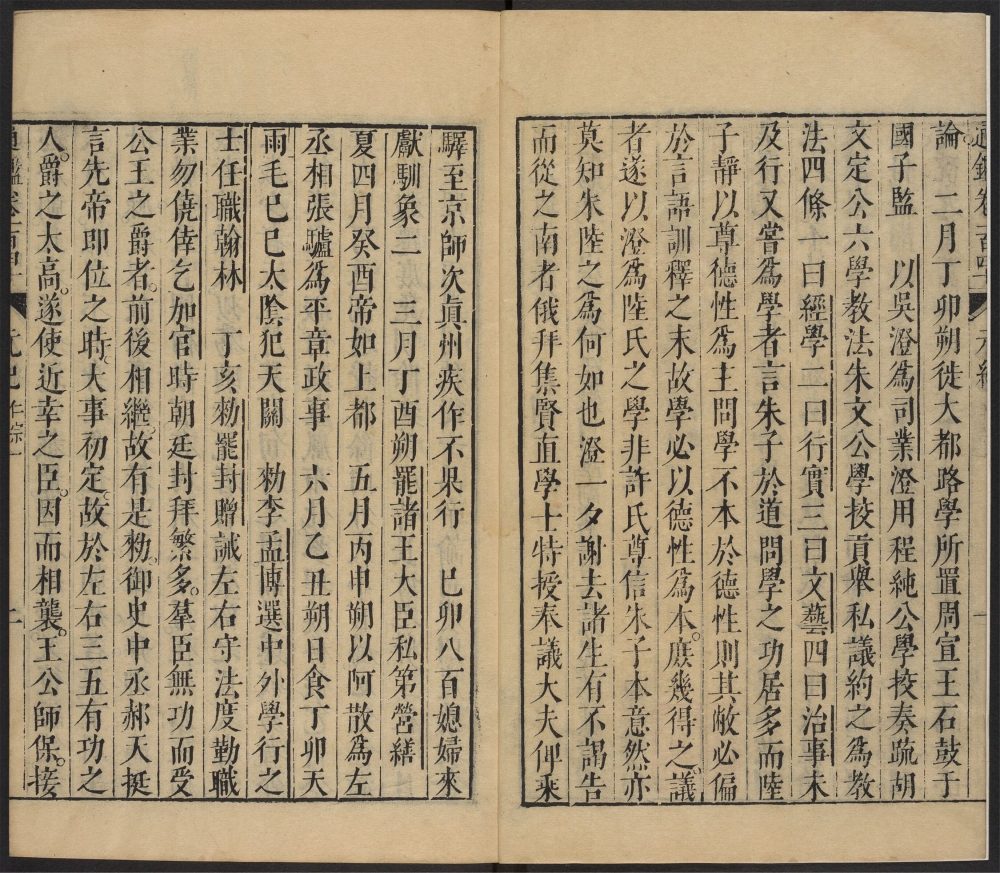 通鑑卷一百四十 元紀 一
論 二月丁卯朔徙大都路學所置周宣王石鼓于
國子監 以吳澄爲司業澄用程純公學挍奏疏胡
文定公六學教法朱文公學挍貢舉私議約之爲教
法四條一曰經學二曰行實三曰文藝四曰治事未
及行又嘗爲學者言朱子於道問學之功居多而陸
子靜以尊德性爲主問學不本於德性則其敝必偏
於言語訓釋之末故學必以德性爲本庶幾得之議
者遂以澄爲陸氏之學非許氏尊信朱子本意然亦
莫知朱陸之爲何如也澄一夕謝去諸生有不謁告
而從之南者俄拜集賢直學士特授奉議大夫俾乘
驛至京師次眞州疾作不果行 己卯八百媳婦來
獻馴象二 三月丁酉朔罷諸王大臣私第營繕
夏四月癸酉帝如上都 五月丙申朔以阿散爲左
丞相張驢爲平章政事 六月乙丑朔日食丁卯天
雨毛己巳太陰犯天關 勑李孟博選中外學行之
士任職翰林 丁亥勑罷封贈誡左右守法度勤職
業勿僥倖乞加官時朝廷封拜繁多。羣臣無功而受
公王之爵者。前後相繼。故有是勑。御史中丞郝天挺
言先帝卽位之時。大事初定。故於左右三五有功之
人。爵之太高。遂使近幸之臣。因而相襲。王公師保。接
通鑑卷一百四十 元紀仁宗一 二